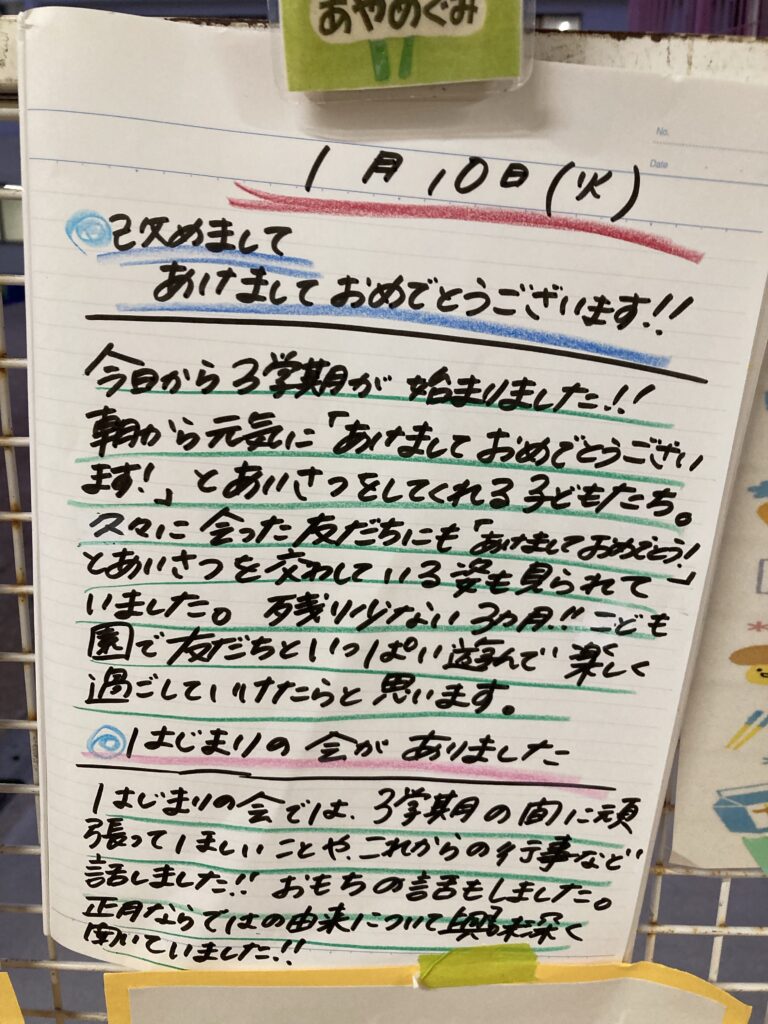 あやめぐみ
No.
Date
1月10日(火)
◎改めまして
あけましておめでとうございます!!
今日から3学期が始まりました!!
朝から元気に「あけましておめでとうござい
ます!」とあいさつをしてくれる子どもたち。
久々に会った友だちにも「あけましておめでとう!」
とあいさつを交わしている姿も見られて
いました。残り少ない3カ月!!こども
園で友だちといっぱい遊んで楽しく
過ごしていけたらと思います。
◎はじまりの会がありました
はじまりの会では、3学期の間に頑
張ってほしいことや、これからの行事など
話しました!!おもちの話もしました。
正月ならではの由来について興味深く
聞いていました!!